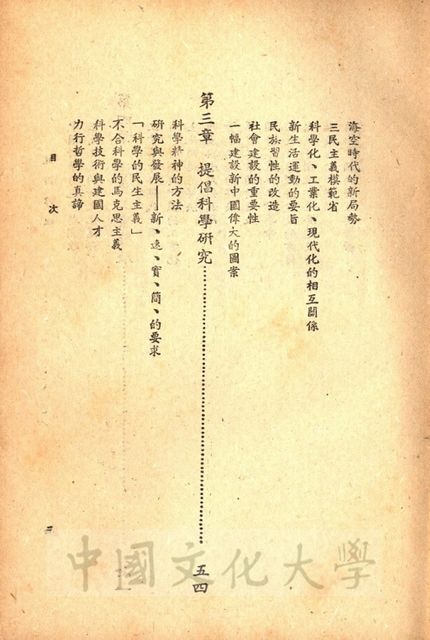 海空時代的新局勢
三民主義模範省
科學化、工業化、現代化的相互關係
新生活運動的要旨
民族習性的改造
社會建設的重要性
一幅建設新中國偉大的圖案
第三章　提倡科學研究……………………五四
科學精神的方法
研究與發展——新、速、實、簡、的要求
「科學的民生主義」
不合科學的馬克思主義
科學技術與建國人才
力行哲學的真諦
目次
三
中國文化大學